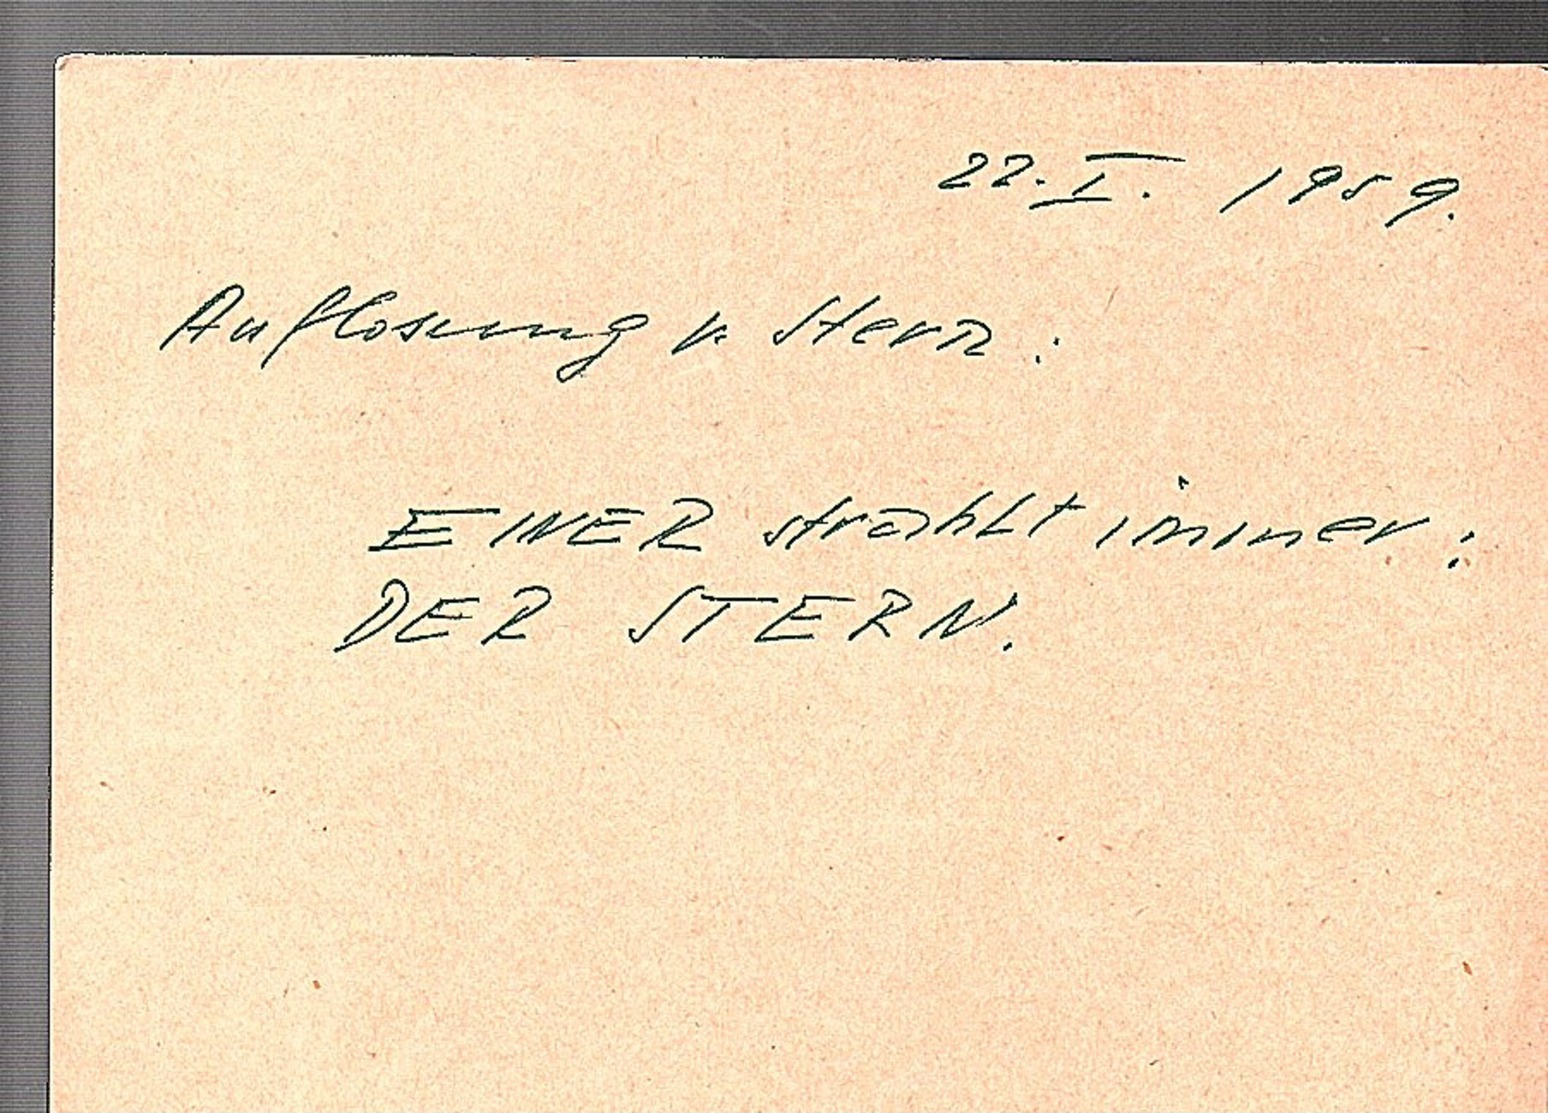 22. I. 1959.
Auflosung v. Stern:
EINER strahlt immer:
DER STERN.